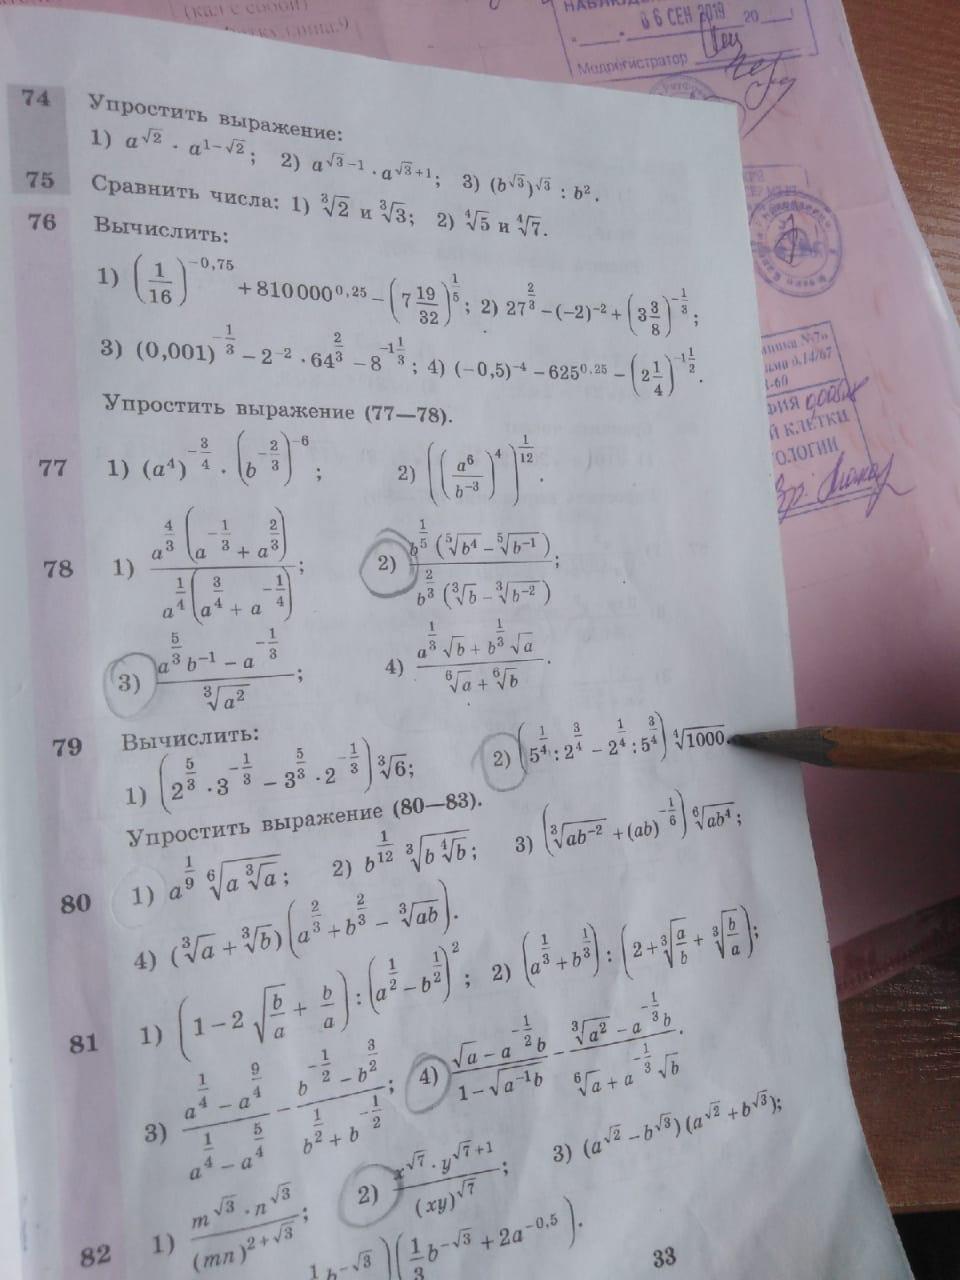 (кал с собой)
06 СЕН 2019 20
Медрегистратор
74 Упростить выражение:
1) a^{√2} · a^{1−√2}; 2) a^{√3−1} · a^{√3+1}; 3) (b^{√3})^{√3} : b^2.
75 Сравнить числа: 1) ∛2 и ∛3; 2) ∜5 и ∜7.
76 Вычислить:
1) (1/16)^{−0,75} + 810000^{0,25} − (7 19/32)^{1/5}; 2) 27^{2/3} − (−2)^{−2} + (3 3/8)^{−1/3};
3) (0,001)^{−1/3} − 2^{−2} · 64^{2/3} − 8^{−1 1/3}; 4) (−0,5)^{−4} − 625^{0,25} − (2 1/4)^{−1 1/2}.
Упростить выражение (77—78).
77 1) (a^4)^{−3/4} · (b^{−2/3})^{−6}; 2) ((a^6/b^{−3})^4)^{1/12}.
78 1) a^{4/3}(a^{−1/3} + a^{2/3}) / a^{1/4}(a^{3/4} + a^{−1/4}); 2) b^{1/5}(⁵√b^4 − ⁵√b^{−1}) / b^{2/3}(∛b − ∛b^{−2});
3) (a^{5/3} b^{−1} − a^{−1/3}) / ∛a^2; 4) (a^{1/3}√b + b^{1/3}√a) / (⁶√a + ⁶√b).
79 Вычислить:
1) (2^{5/3} · 3^{−1/3} − 3^{5/3} · 2^{−1/3}) ∛6; 2) (5^{1/4} : 2^{3/4} − 2^{1/4} : 5^{3/4}) ∜1000.
Упростить выражение (80—83).
80 1) a^{1/9} ⁶√(a ∛a); 2) b^{1/12} ∛(b ∜b); 3) (∛(ab^{−2}) + (ab)^{−1/6}) ⁶√(ab^4);
4) (∛a + ∛b)(a^{2/3} + b^{2/3} − ∛(ab)).
81 1) (1 − 2√(b/a) + b/a) : (a^{1/2} − b^{1/2})^2; 2) (a^{1/3} + b^{1/3}) : (2 + ∛(a/b) + ∛(b/a));
3) (a^{1/4} − a^{9/4}) / (a^{1/4} − a^{5/4}) − (b^{−1/2} − b^{3/2}) / (b^{1/2} + b^{−1/2}); 4) (√a − a^{−1/2} b) / (1 − √(a^{−1}b)) − (∛a^2 − a^{−1/3} b) / (⁶√a + a^{−1/3} √b).
82 1) m^{√3} · n^{√3} / (mn)^{2+√3}; 2) x^{√7} · y^{√7+1} / (xy)^{√7}; 3) (a^{√2} − b^{√3})(a^{√2} + b^{√3});
b^{−√3})(1/3 b^{−√3} + 2a^{−0,5}).
33